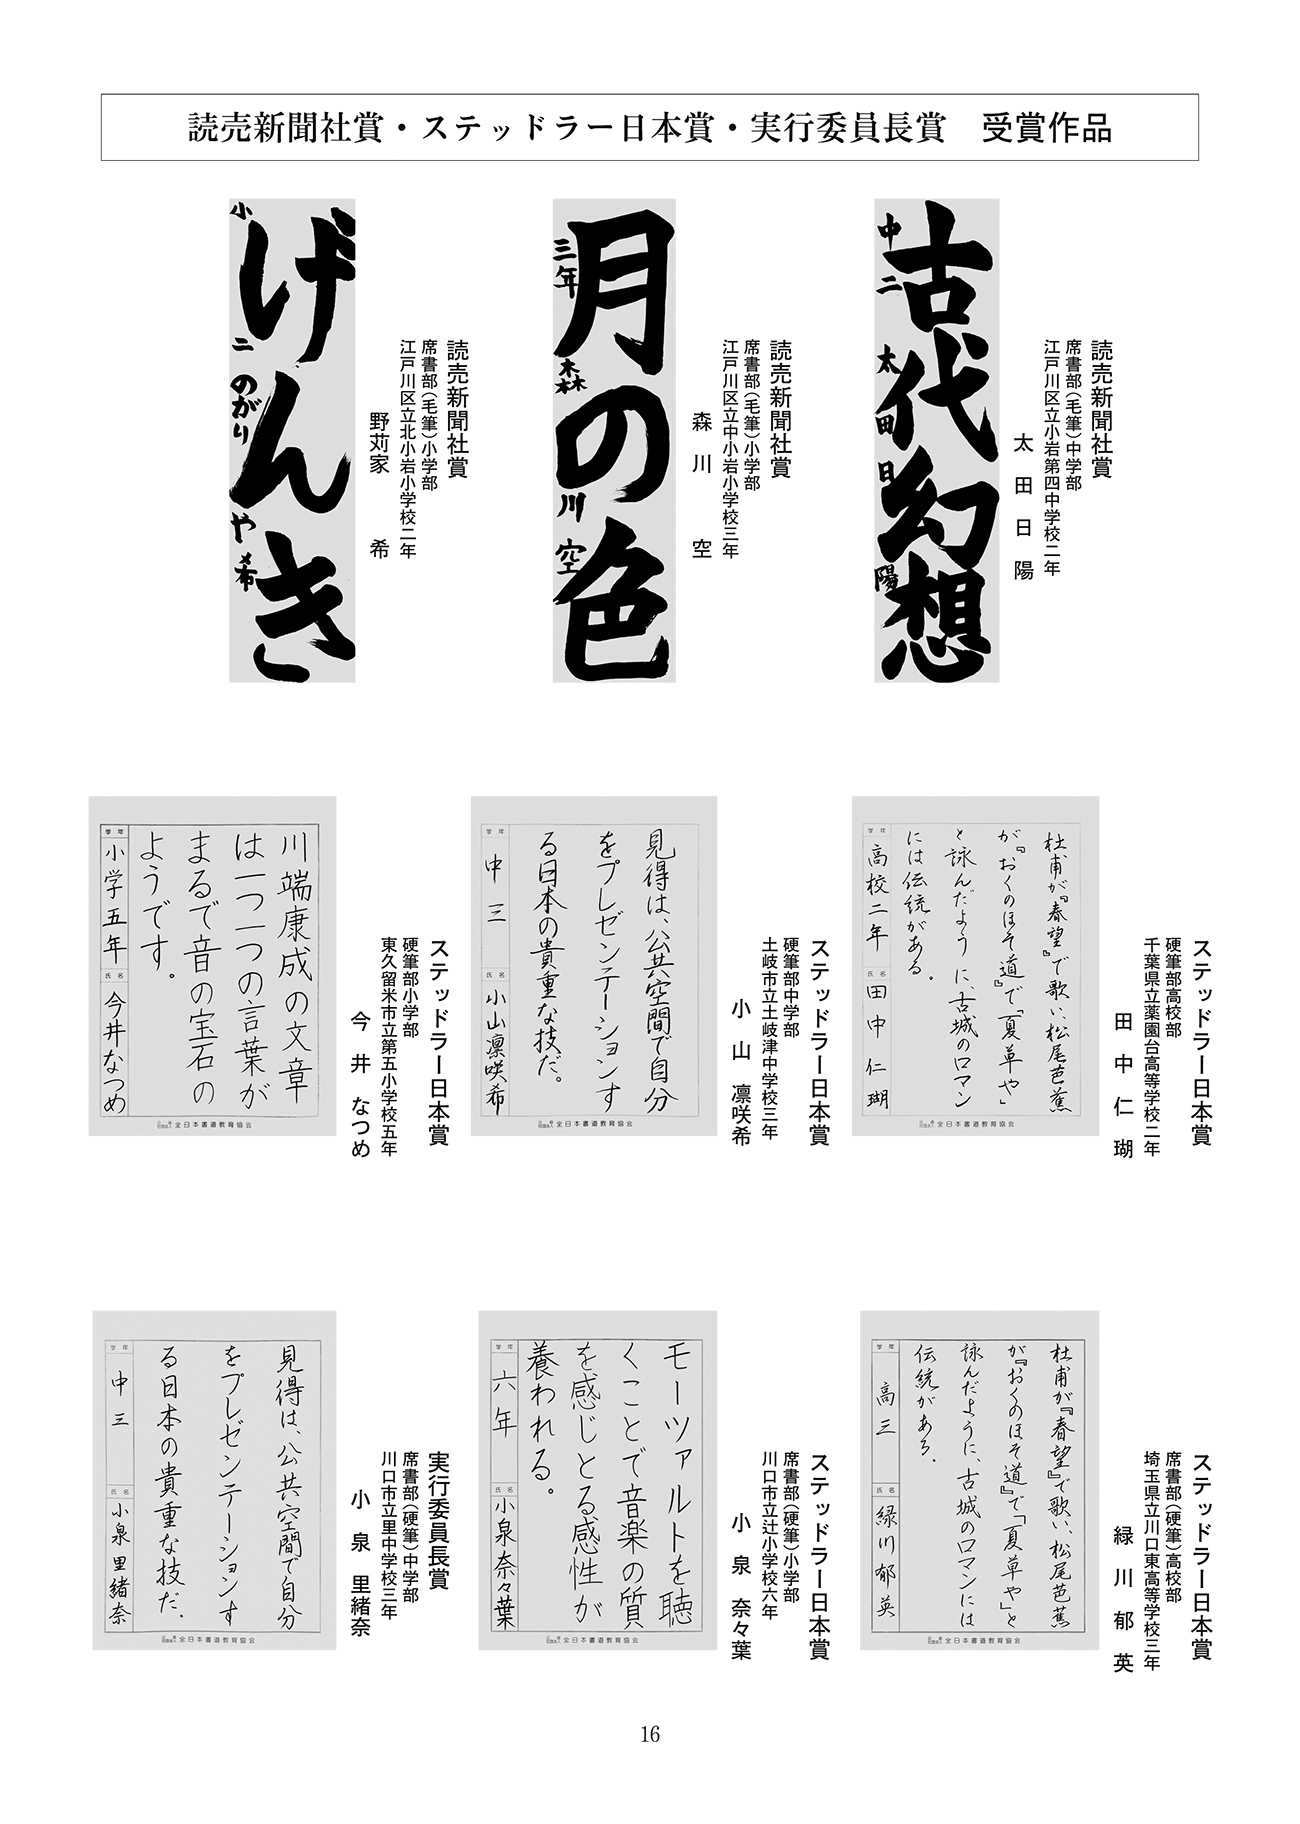 読売新聞社賞・ステッドラー日本賞・実行委員長賞　受賞作品
古代幻想
中二 太田日陽
読売新聞社賞
席書部(毛筆)中学部
江戸川区立小岩第四中学校二年
太田日陽
月の色
三年 森川空
読売新聞社賞
席書部(毛筆)小学部
江戸川区立中小岩小学校三年
森川空
げんき
小二 のがりや希
読売新聞社賞
席書部(毛筆)小学部
江戸川区立北小岩小学校二年
野苅家希
杜甫が『春望』で歌い、松尾芭蕉
が『おくのほそ道』で「夏草や」
と詠んだように、古城のロマン
には伝統がある。
学年
高校二年
氏名
田中仁瑚
全日本書道教育協会
ステッドラー日本賞
硬筆部高校部
千葉県立薬園台高等学校二年
田中仁瑚
見得は、公共空間で自分
をプレゼンテーションす
る日本の貴重な技だ。
学年
中三
氏名
小山凛咲希
全日本書道教育協会
ステッドラー日本賞
硬筆部中学部
土岐市立土岐津中学校三年
小山凛咲希
川端康成の文章
は一つ一つの言葉が
まるで音の宝石の
ようです。
学年
小学五年
氏名
今井なつめ
全日本書道教育協会
ステッドラー日本賞
硬筆部小学部
東久留米市立第五小学校五年
今井なつめ
杜甫が『春望』で歌い、松尾芭蕉
が『おくのほそ道』で「夏草や」と
詠んだように、古城のロマンには
伝統がある。
学年
高三
氏名
緑川郁英
全日本書道教育協会
ステッドラー日本賞
席書部(硬筆)高校部
埼玉県立川口東高等学校三年
緑川郁英
モーツァルトを聴
くことで音楽の質
を感じとる感性が
養われる。
学年
六年
氏名
小泉奈々葉
全日本書道教育協会
ステッドラー日本賞
席書部(硬筆)小学部
川口市立辻小学校六年
小泉奈々葉
見得は、公共空間で自分
をプレゼンテーションす
る日本の貴重な技だ。
学年
中三
氏名
小泉里緒奈
全日本書道教育協会
実行委員長賞
席書部(硬筆)中学部
川口市立里中学校三年
小泉里緒奈
16